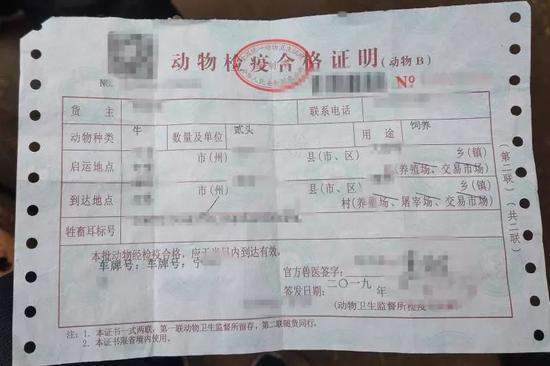 动物检疫合格证明(动物B)
NO. № 
货主 联系电话
动物种类 牛 数量及单位 贰头 用途 饲养
启运地点 市(州) 县(市、区) 乡(镇)
(养殖场、交易市场)
到达地点 市(州) 县(市、区) 乡(镇)
村(养殖场、屠宰场、交易市场)
牲畜耳标号
本批动物经检疫合格,应于当日内到达有效。
车牌号:车牌号:宁
官方兽医签字:
签发日期:二〇一九年
(动物卫生监督所检疫
注:1.本证书一式两联,第一联动物卫生监督所留存,第二联随货同行。
2.本证书限省境内使用。
(第二联)
(共二联)